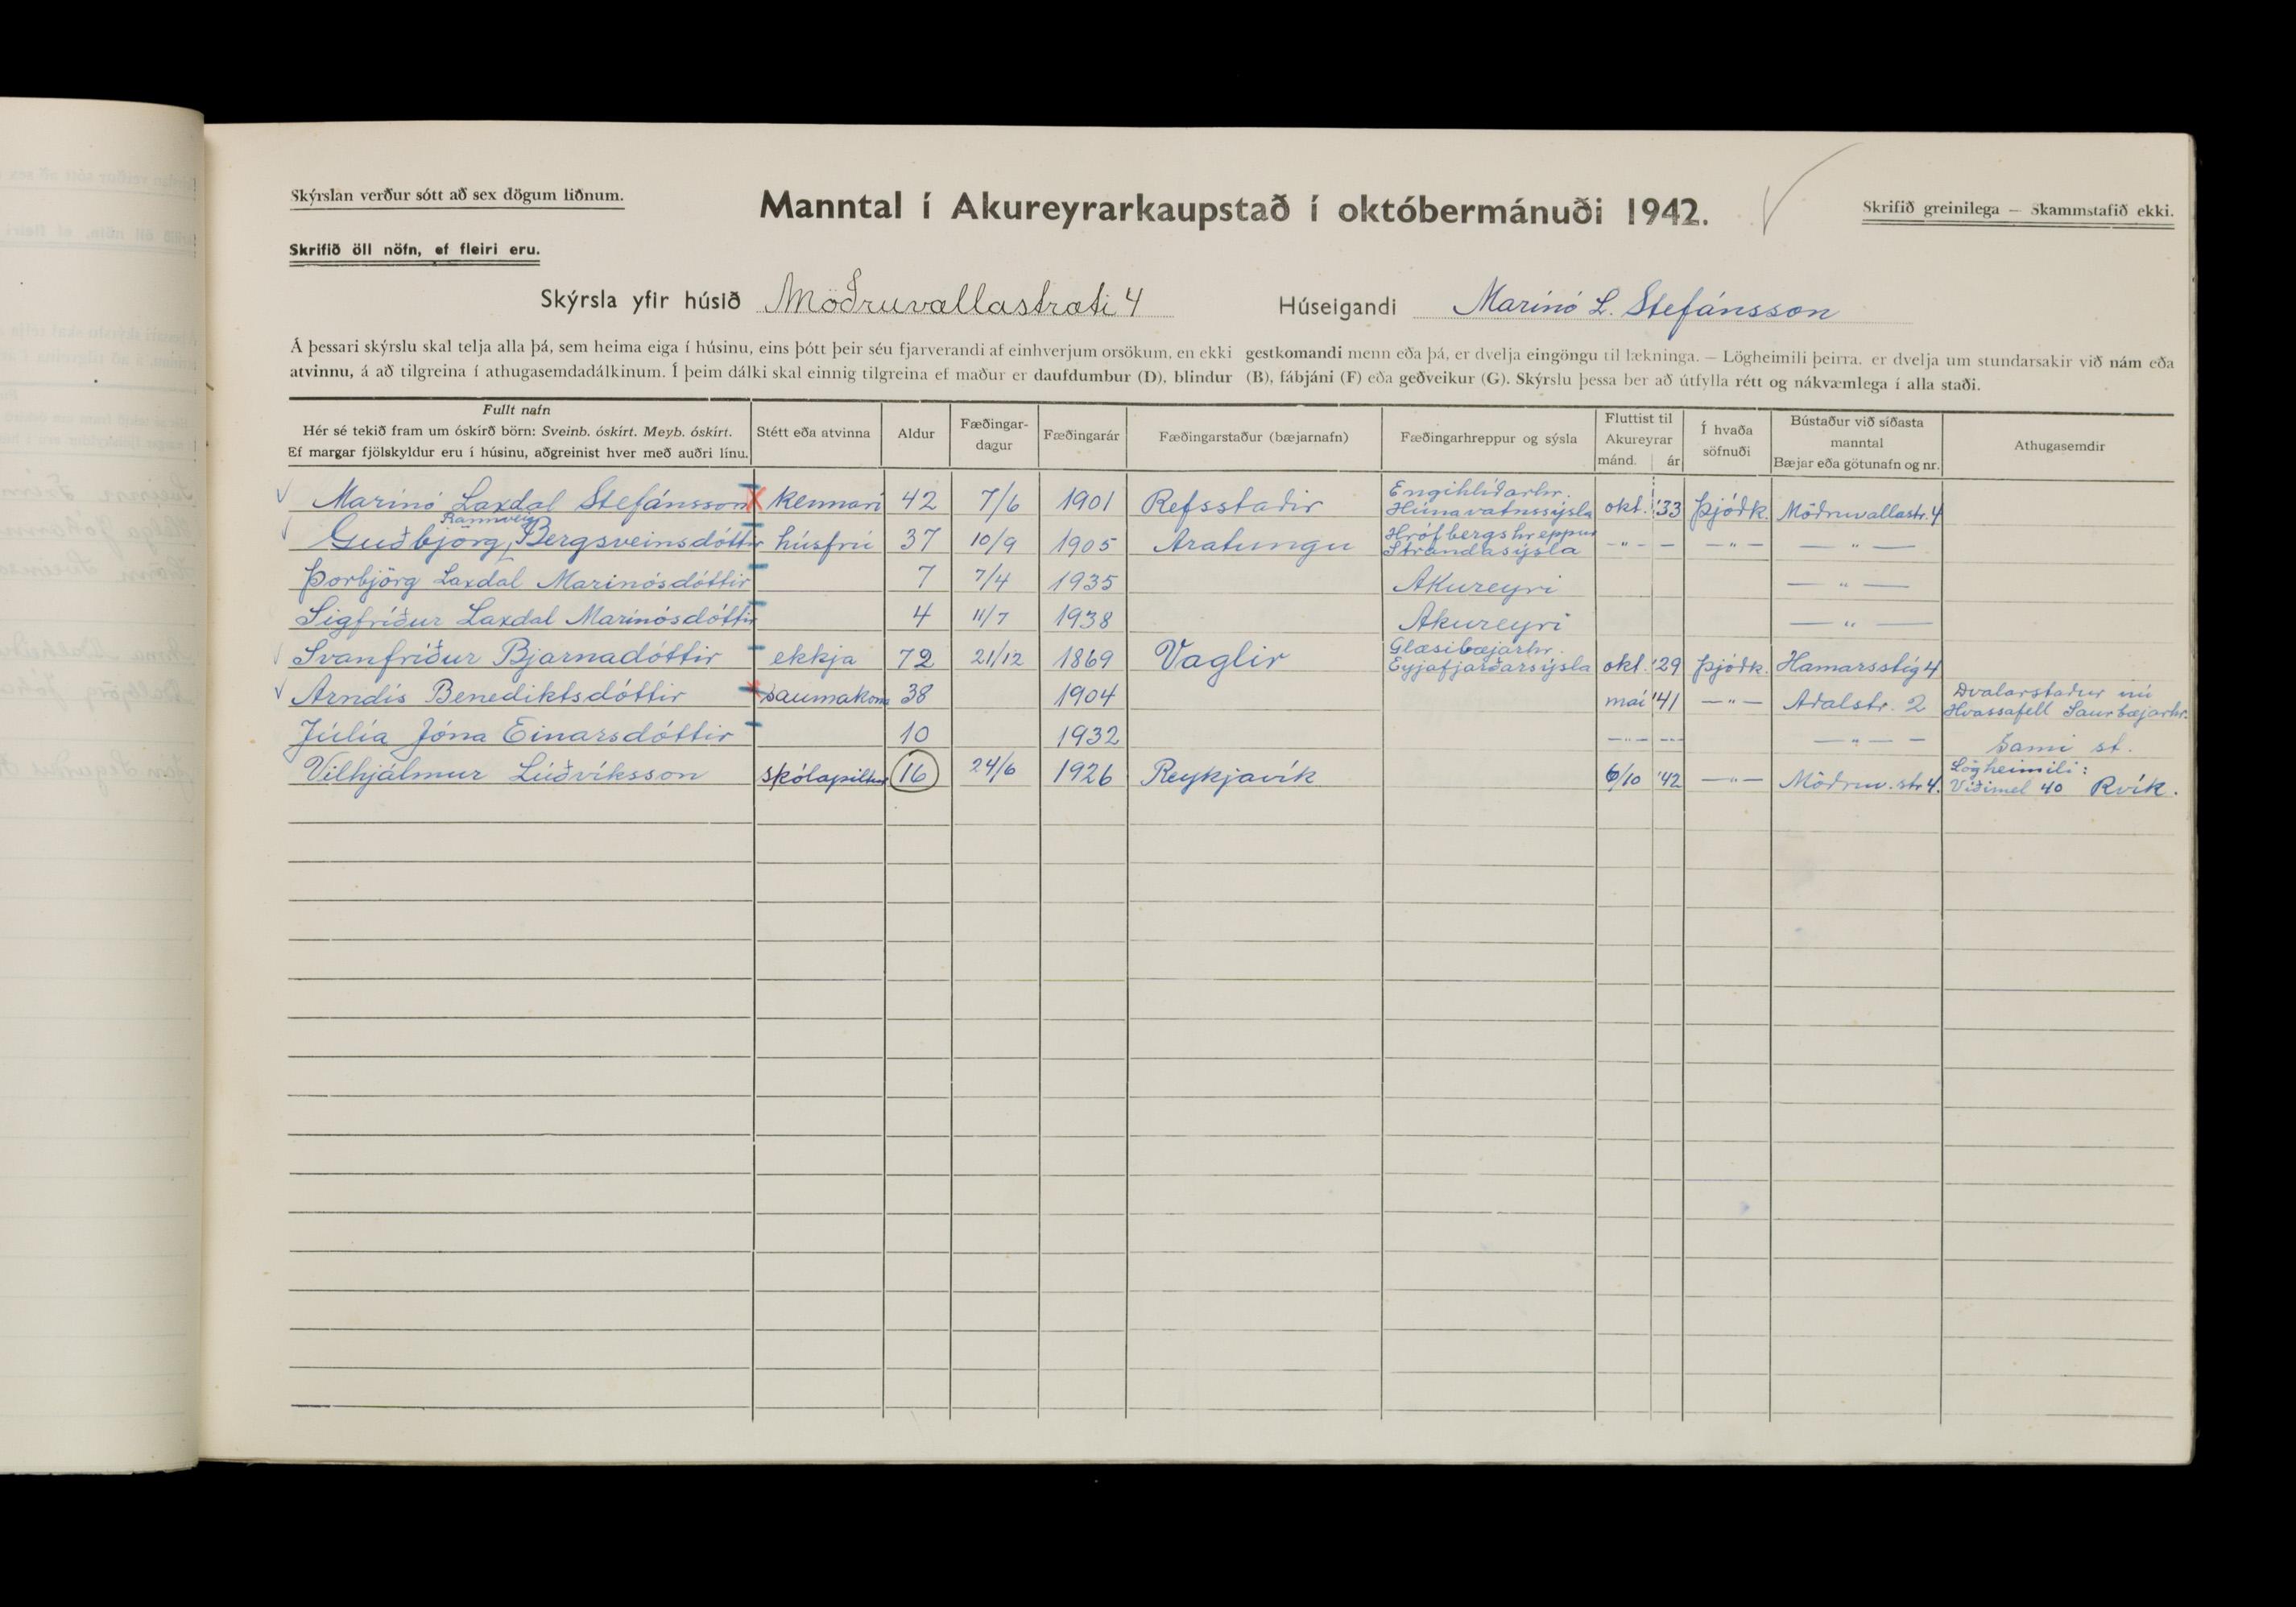 Skýrslan verður sótt að sex dögum liðnum.
Manntal í Akureyrarkaupstað í októbermánuði 1942.
Skrifið greinilega — Skammstafið ekki.
Skrifið öll nöfn, ef fleiri eru.
Skýrsla yfir húsið Möðruvallastræti 4 Húseigandi Marinó L. Stefánsson
Á þessari skýrslu skal telja alla þá, sem heima eiga í húsinu, eins þótt þeir séu fjarverandi af einhverjum orsökum, en ekki gestkomandi menn eða þá, er dvelja eingöngu til lækninga. — Lögheimili þeirra, er dvelja um stundarsakir við nám eða
atvinnu, á að tilgreina í athugasemdadálkinum. Í þeim dálki skal einnig tilgreina ef maður er daufdumbur (D), blindur (B), fábjáni (F) eða geðveikur (G). Skýrslu þessa ber að útfylla rétt og nákvæmlega í alla staði.
Fullt nafn
Hér sé tekið fram um óskírð börn: Sveinb. óskírt. Meyb. óskírt.
Ef margar fjölskyldur eru í húsinu, aðgreinist hver með auðri línu.
Stétt eða atvinna
Aldur
Fæðingar-
dagur
Fæðingarár
Fæðingarstaður (bæjarnafn)
Fæðingarhreppur og sýsla
Fluttist til
Akureyrar
mánd. ár
Í hvaða
söfnuði
Bústaður við síðasta
manntal
Bæjar eða götunafn og nr.
Athugasemdir
Marinó Laxdal Stefánsson kennari 42 7/6 1901 Refsstaðir Engihlíðarhr. Húnavatnssýsla okt. '33 Þjóðk. Möðruvallastr. 4
Rannveig
Guðbjörg Bergsveinsdóttir húsfrú 37 10/9 1905 Aratungu Hrófbergshreppur Strandasýsla -"- - -"- — " —
Þorbjörg Laxdal Marinósdóttir 7 7/4 1935 Akureyri — " —
Sigfríður Laxdal Marinósdóttir 4 11/7 1938 Akureyri — " —
Svanfríður Bjarnadóttir ekkja 72 21/12 1869 Vaglir Glæsibæjarhr. Eyjafjarðarsýsla okt. '29 Þjóðk. Hamarsstíg 4
Arndís Benediktsdóttir saumakona 38 1904 maí '41 -"- Aðalstr. 2 Dvalarstaður nú Hvassafell Saurbæjarhr.
Júlía Jóna Einarsdóttir 10 1932 -"- -- — " — Sami st.
Vilhjálmur Lúðvíksson skólapiltur 16 24/6 1926 Reykjavík 6/10 '42 -"- Möðruv. str 4. Lögheimili: Víðimel 40 Rvík.